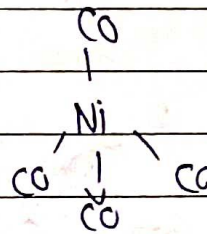 CO
Ni
CO CO
CO